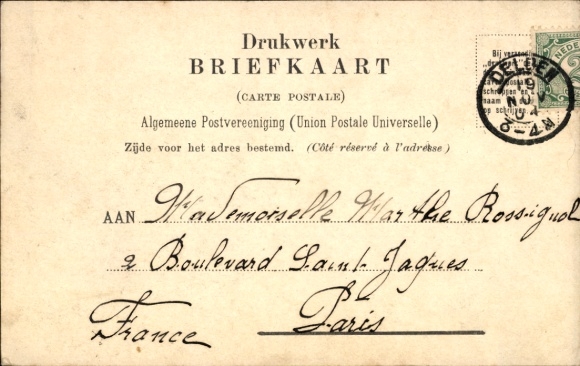 Drukwerk
BRIEFKAART
(CARTE POSTALE)
Algemeene Postvereeniging (Union Postale Universelle)
Zijde voor het adres bestemd. (Côté réservé à l'adresse)
Bij verzending
DELDEN
19
NOV
04
8-4 N
schrijven en
naam
op schrijven.
NEDER
AAN Mademoiselle Marthe Rossignol
2 Boulevard Saint-Jaques
France Paris